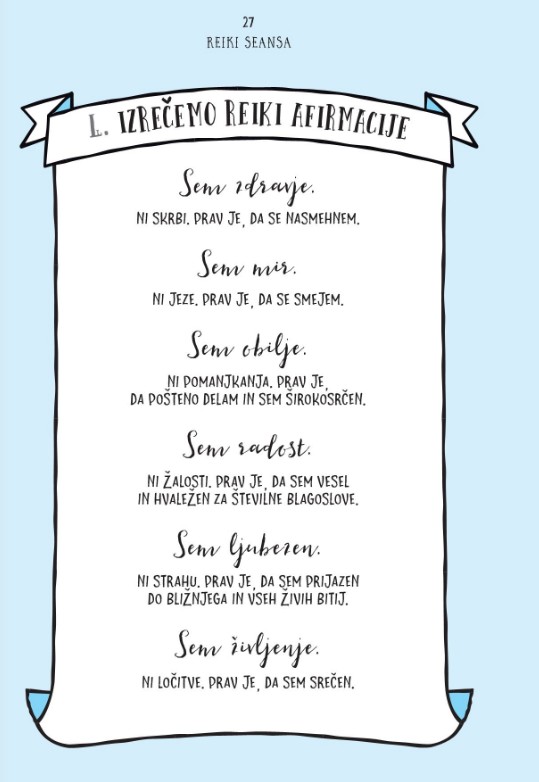 27
REIKI SEANSA
1. IZREČEMO REIKI AFIRMACIJE
Sem zdravje.
NI SKRBI. PRAV JE, DA SE NASMEHNEM.
Sem mir.
NI JEZE. PRAV JE, DA SE SMEJEM.
Sem obilje.
NI POMANJKANJA. PRAV JE,
DA POŠTENO DELAM IN SEM ŠIROKOSRČEN.
Sem radost.
NI ŽALOSTI. PRAV JE, DA SEM VESEL
IN HVALEŽEN ZA ŠTEVILNE BLAGOSLOVE.
Sem ljubezen.
NI STRAHU. PRAV JE, DA SEM PRIJAZEN
DO BLIŽNJEGA IN VSEH ŽIVIH BITIJ.
Sem življenje.
NI LOČITVE. PRAV JE, DA SEM SREČEN.